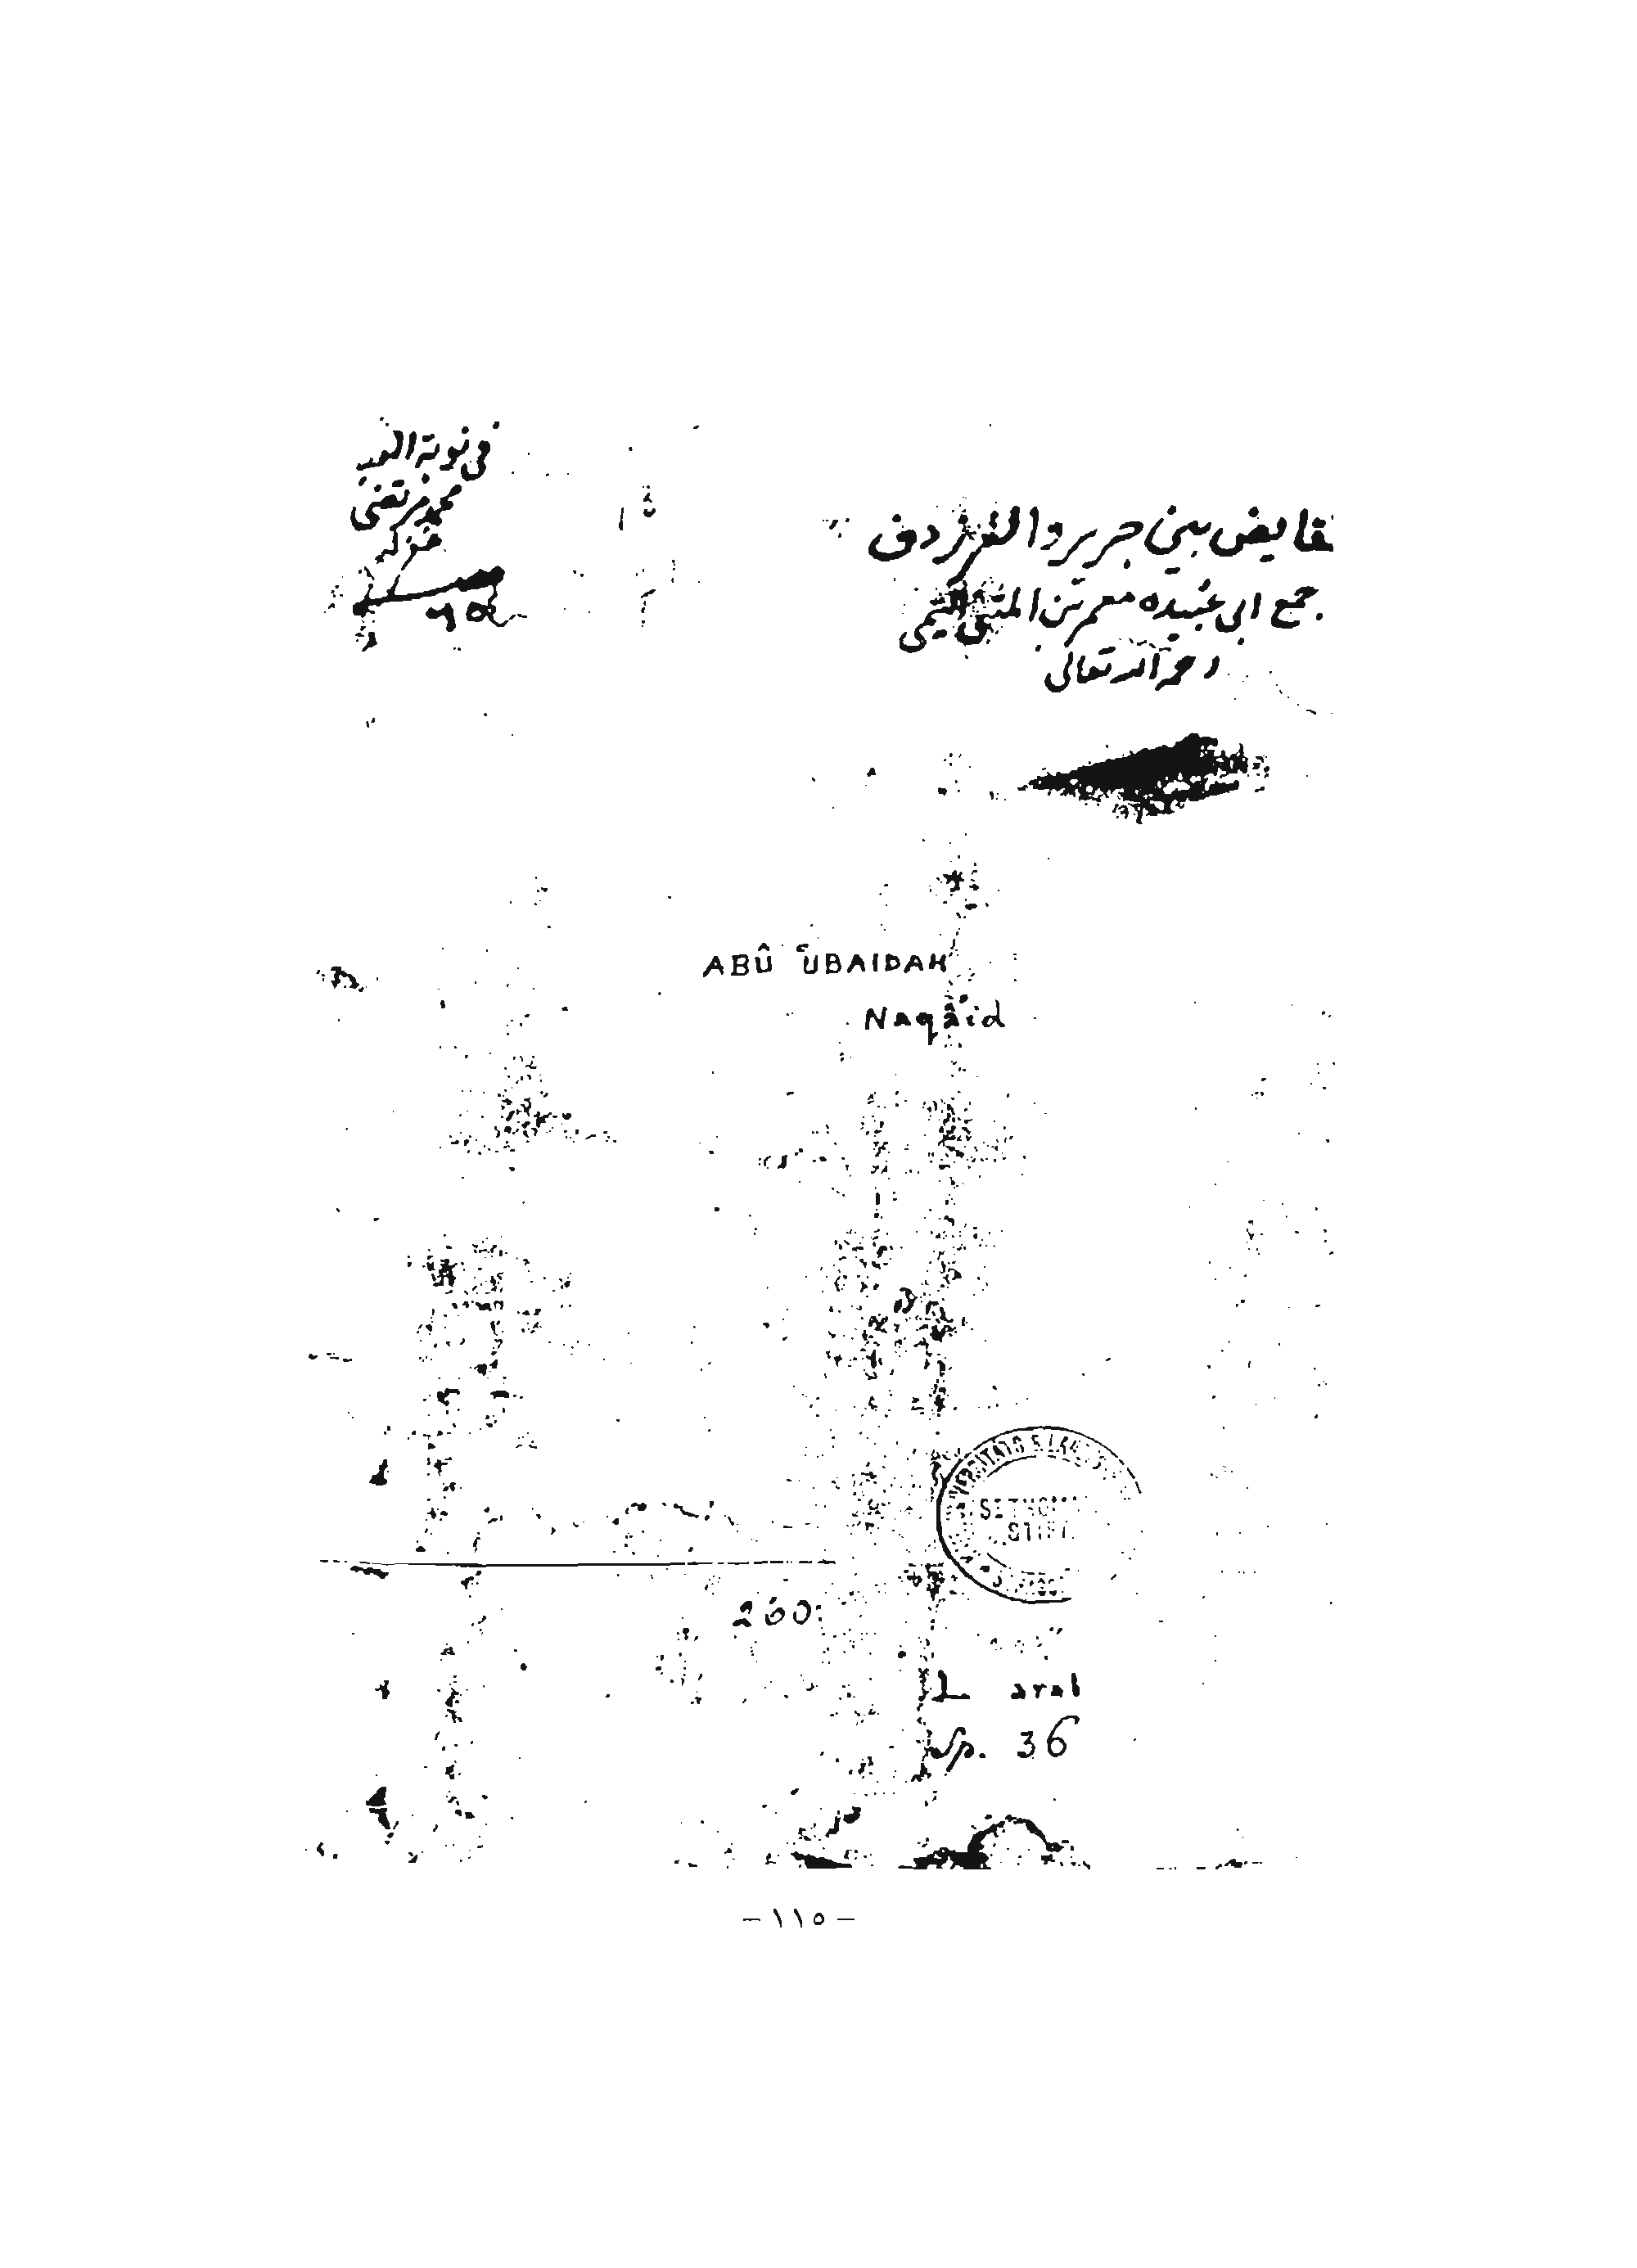 نقايض بين جرير والفرزدق
جمع ابى عبيده معمر بن المثنى التيمى
رحمه الله تعالى
فى نوبة العبد
محمد مرتضى
ABÛ ʿUBAIDAH
Naqâid
260
L arab
Sp. 36
– ١١٥ –